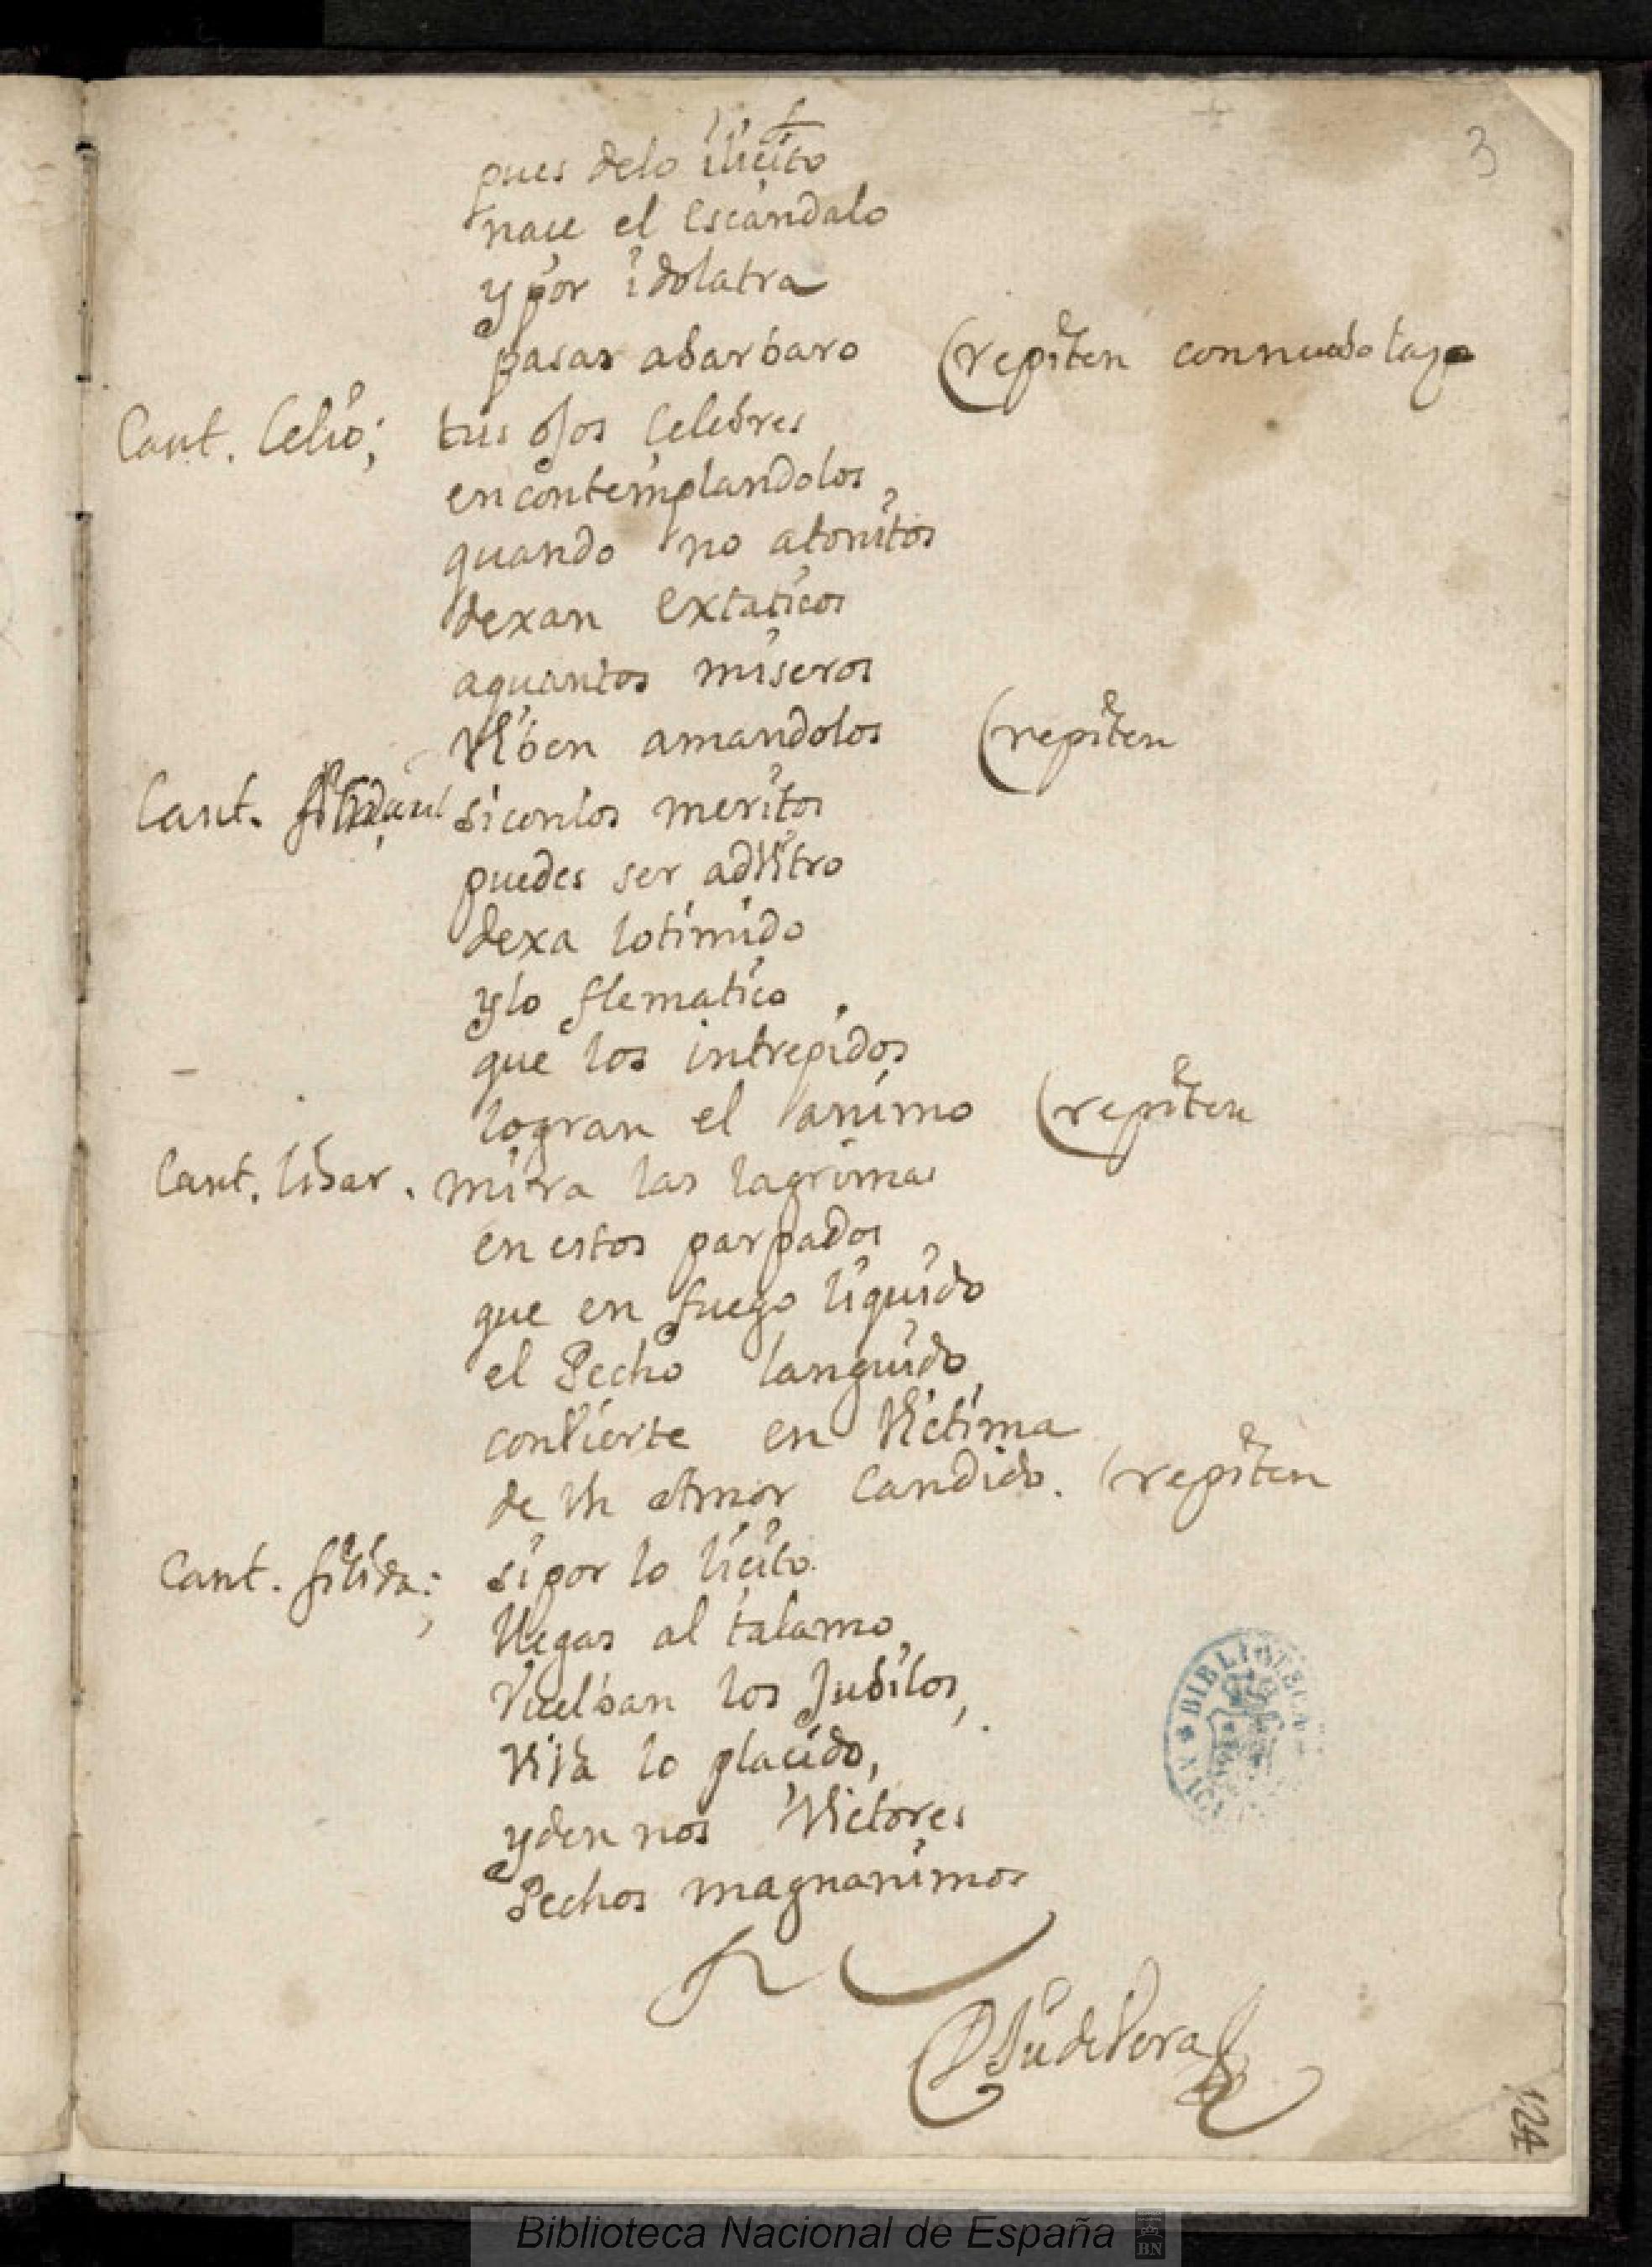 3
pues delo ilicito
nace el escandalo
y por idolatra
pasas abarbaro (repiten con nuebo lazo
Cant. Celio; tus ojos Celebres
encontemplandolos
quando no atonitos
dexan extaticos
aquantos miseros
Viben amandolos (repiten
Cant. siconlos meritos
puedes ser adVitro
dexa lotimido
ylo flematico
que los intrepidos
logran el animo (repiten
Cant. lisar. mira las lagrimas
en estos parpados
que en fuego liquido
el Pecho languido
conVierte en Victima
de Vn Amor Candido. (repiten
Cant. filida; si por lo licito
llegas al talamo
Vuelban los Jubilos,
ViVa lo placido,
yden nos Victores
Pechos magnanimos
de Vera
124
BIBLIOTECA
Biblioteca Nacional de España
BN